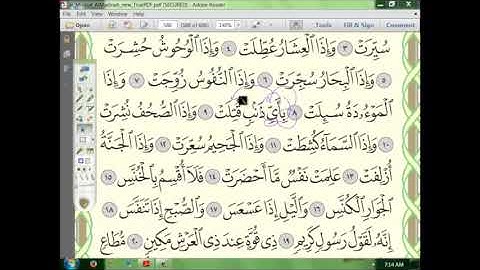 Mushaf_AlMadinah_new_TruePDF.pdf [SECURED] - Adobe Reader
Open
588
(588 of 698)
140%
Tools
Fill & Sign
Comment
سُيِّرَتْ ٣ وَإِذَا ٱلْعِشَارُ عُطِّلَتْ ٤ وَإِذَا ٱلْوُحُوشُ حُشِرَتْ
٥ وَإِذَا ٱلْبِحَارُ سُجِّرَتْ ٦ وَإِذَا ٱلنُّفُوسُ زُوِّجَتْ ٧ وَإِذَا
ٱلْمَوْءُۥدَةُ سُئِلَتْ ٨ بِأَيِّ ذَنۢبٍ قُتِلَتْ ٩ وَإِذَا ٱلصُّحُفُ نُشِرَتْ
١٠ وَإِذَا ٱلسَّمَآءُ كُشِطَتْ ١١ وَإِذَا ٱلْجَحِيمُ سُعِّرَتْ ١٢ وَإِذَا ٱلْجَنَّةُ
أُزْلِفَتْ ١٣ عَلِمَتْ نَفْسٌ مَّآ أَحْضَرَتْ ١٤ فَلَآ أُقْسِمُ بِٱلْخُنَّسِ ١٥
ٱلْجَوَارِ ٱلْكُنَّسِ ١٦ وَٱلَّيْلِ إِذَا عَسْعَسَ ١٧ وَٱلصُّبْحِ إِذَا تَنَفَّسَ ١٨
إِنَّهُۥ لَقَوْلُ رَسُولٍ كَرِيمٍ ١٩ ذِى قُوَّةٍ عِندَ ذِى ٱلْعَرْشِ مَكِينٍ ٢٠ مُّطَاعٍ
7:14 AM